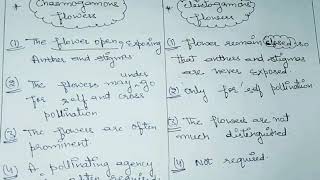 * Chasmogamous flowers
(1) The flower open, exposing
Anther and stigma
(2) The flowers may under go
for self and cross
pollination
(3) The flowers are often
prominent
(4) A pollinating agency
is often required
* Cleistogamous
flowers
(1) flower remain closed so
that anthers and stigmas
are never exposed.
(2) Only for self pollination
(3) The flowers are not
much distinguished
(4) Not required.